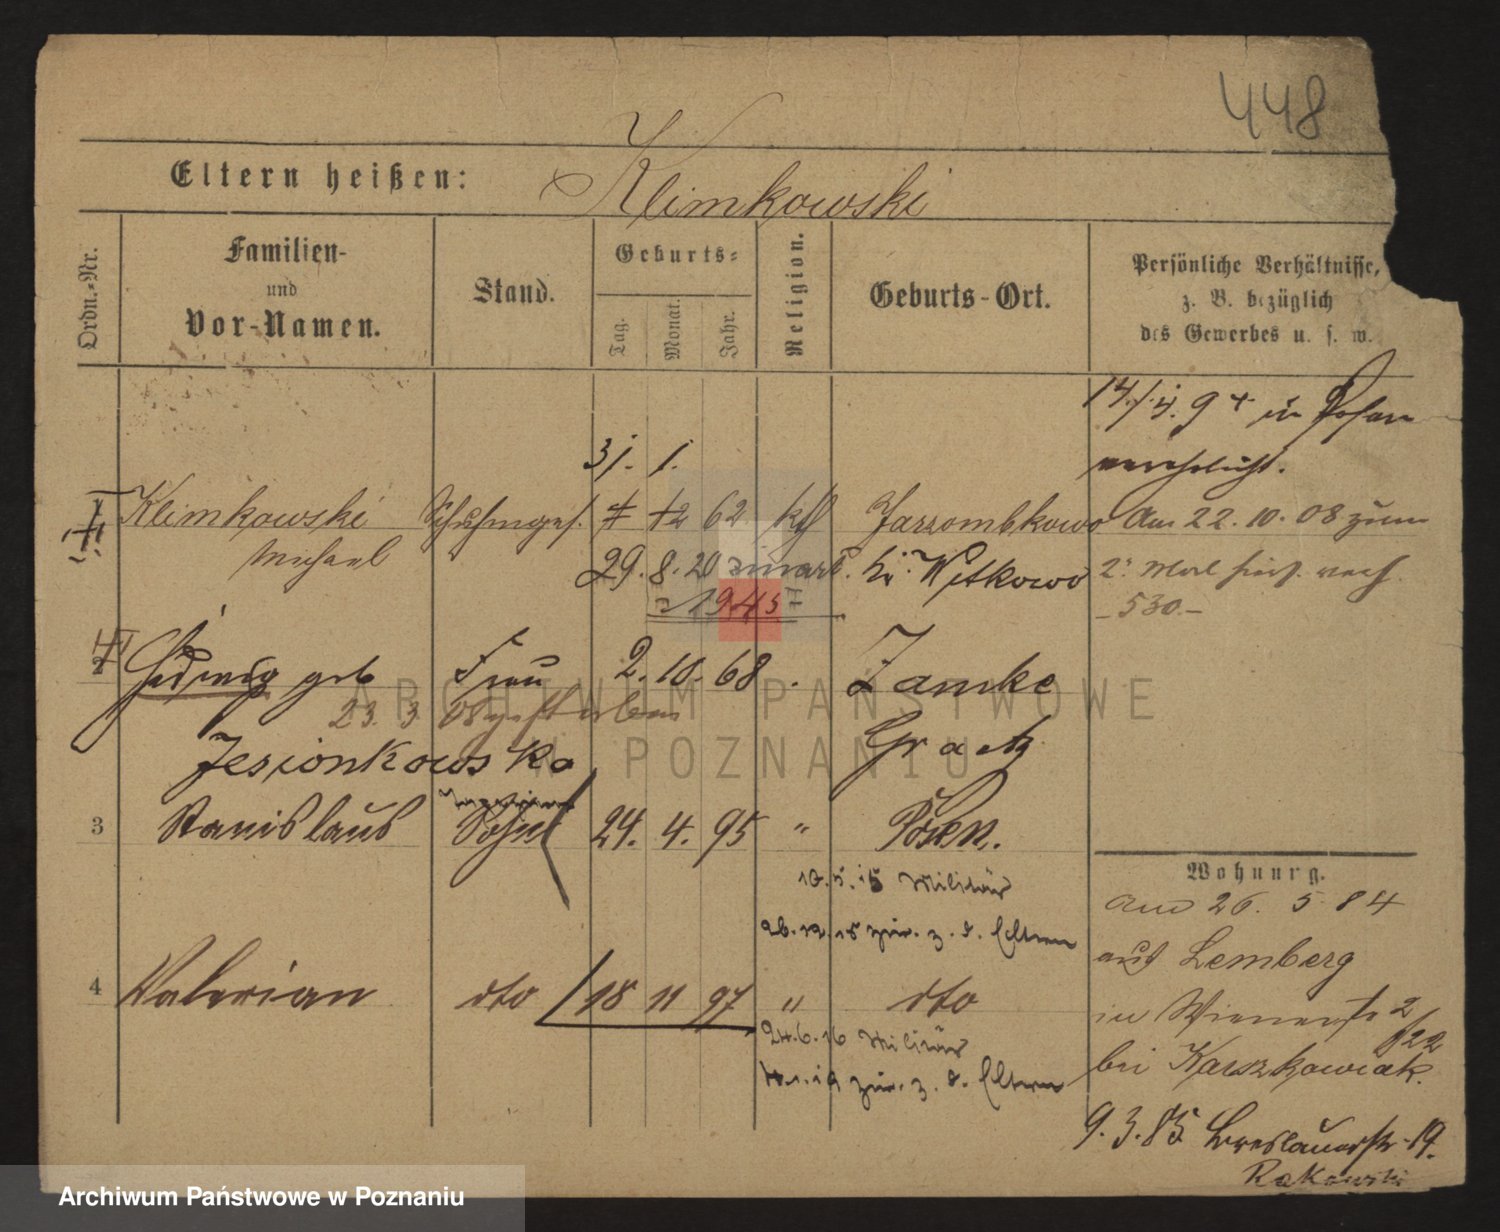 448
Eltern heißen: Klimkowski
Ordn.-Nr.
Familien-
und
Vor-Namen.
Stand.
Geburts-
Tag.
Monat.
Jahr.
Religion.
Geburts-Ort.
Persönliche Verhältnisse,
z. B. bezüglich
des Gewerbes u. s. w.
14./4. 94 in Posen
verehelicht.
31. 1.
1 Klimkowski 12 62 kth Jarzombkowo Am 22. 10. 08 zum
Michael 29. 8. 20 Kr. Witkowo 2. Mal hier. verh.
=1943= -530.-
2 Hedwig geb Frau 2. 10. 68 Zamke
23. 3 08 gestorben
Jesionkowska Graetz
3 Stanislaus Sohn 24. 4. 95 " Posen.
Wohnung.
10.5.15 Militär
Am 26. 5 84
26.12.15 zur. z. d. Eltern
aus Lemberg
4 Valerian dto 18 11 97 " dto
in Wienerstr 2
24.6.16 Militär
/22
bei Karszkowiak.
1.19 zur. z. d. Eltern
9.3.85 Breslauerstr. 19.
Rakowski
ARCHIWUM PAŃSTWOWE
W POZNANIU
Archiwum Państwowe w Poznaniu